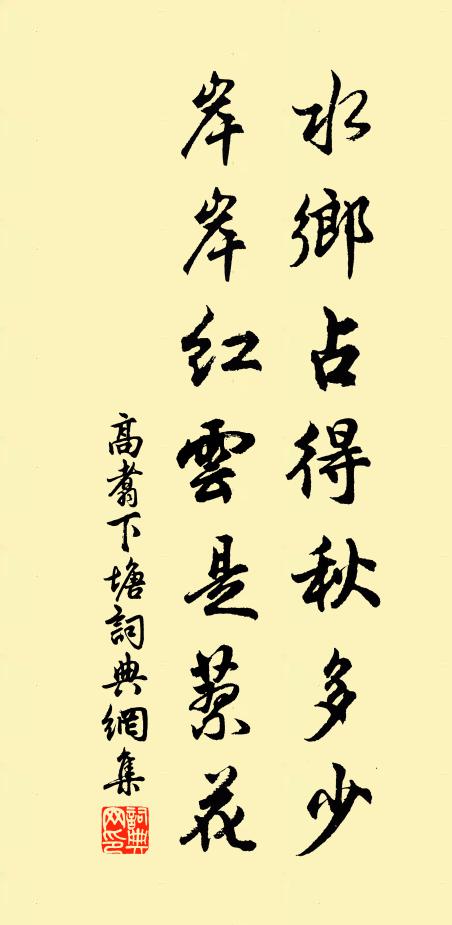 水鄉占得秋多少
岸岸紅雲是蓼花
高翥下塘詞典網集
詞典网印